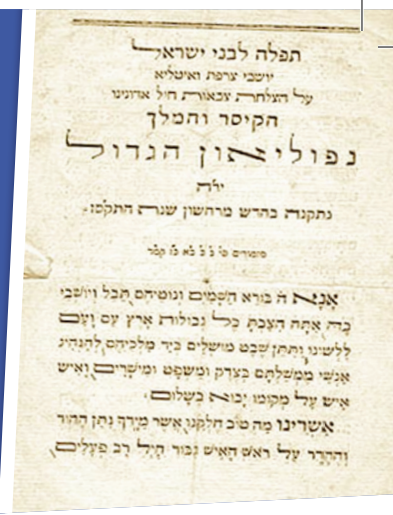 תפלה לבני ישראל
יושבי צרפת ואיטליא
על הצלחת צבאות חיל אדונינו
הקיסר והמלך
נפוליאון הגדול
יר״ה
נתקנה בחדש מרחשון שנת התקסו׃
מזמורים כ׳ ג׳ ב׳ כ״א כ״ז קמ״ד
אָנָא ה׳ בורא הַשָּׁמַיִם וְנוֹטֵיהֶם תֵּבֵל וְיוֹשְׁבֵי
בָהּ אַתָּה הִצַּבְתָּ כָּל גְּבוּלוֹת אֶרֶץ עַם וָעָם
לִלְשׁוֹנוֹ וַתִּתֵּן שֵׁבֶט מוֹשְׁלִים בְּיַד מַלְכֵיהֶם לְהַנְהִיג
אַנְשֵׁי מֶמְשַׁלְתָּם בְּצֶדֶק וּמִשְׁפָּט וּמֵישָׁרִים וְאִישׁ
אִישׁ עַל מְקוֹמוֹ יָבוֹא בְשָׁלוֹם׃
אַשְׁרֵינוּ מַה טּוֹב חֶלְקֵנוּ אֲשֶׁר מִיָּדְךָ נִתַּן הַהוֹד
וְהֶהָדָר עַל רֹאשׁ הָאִישׁ גִּבּוֹר חַיִל רַב פְּעָלִים